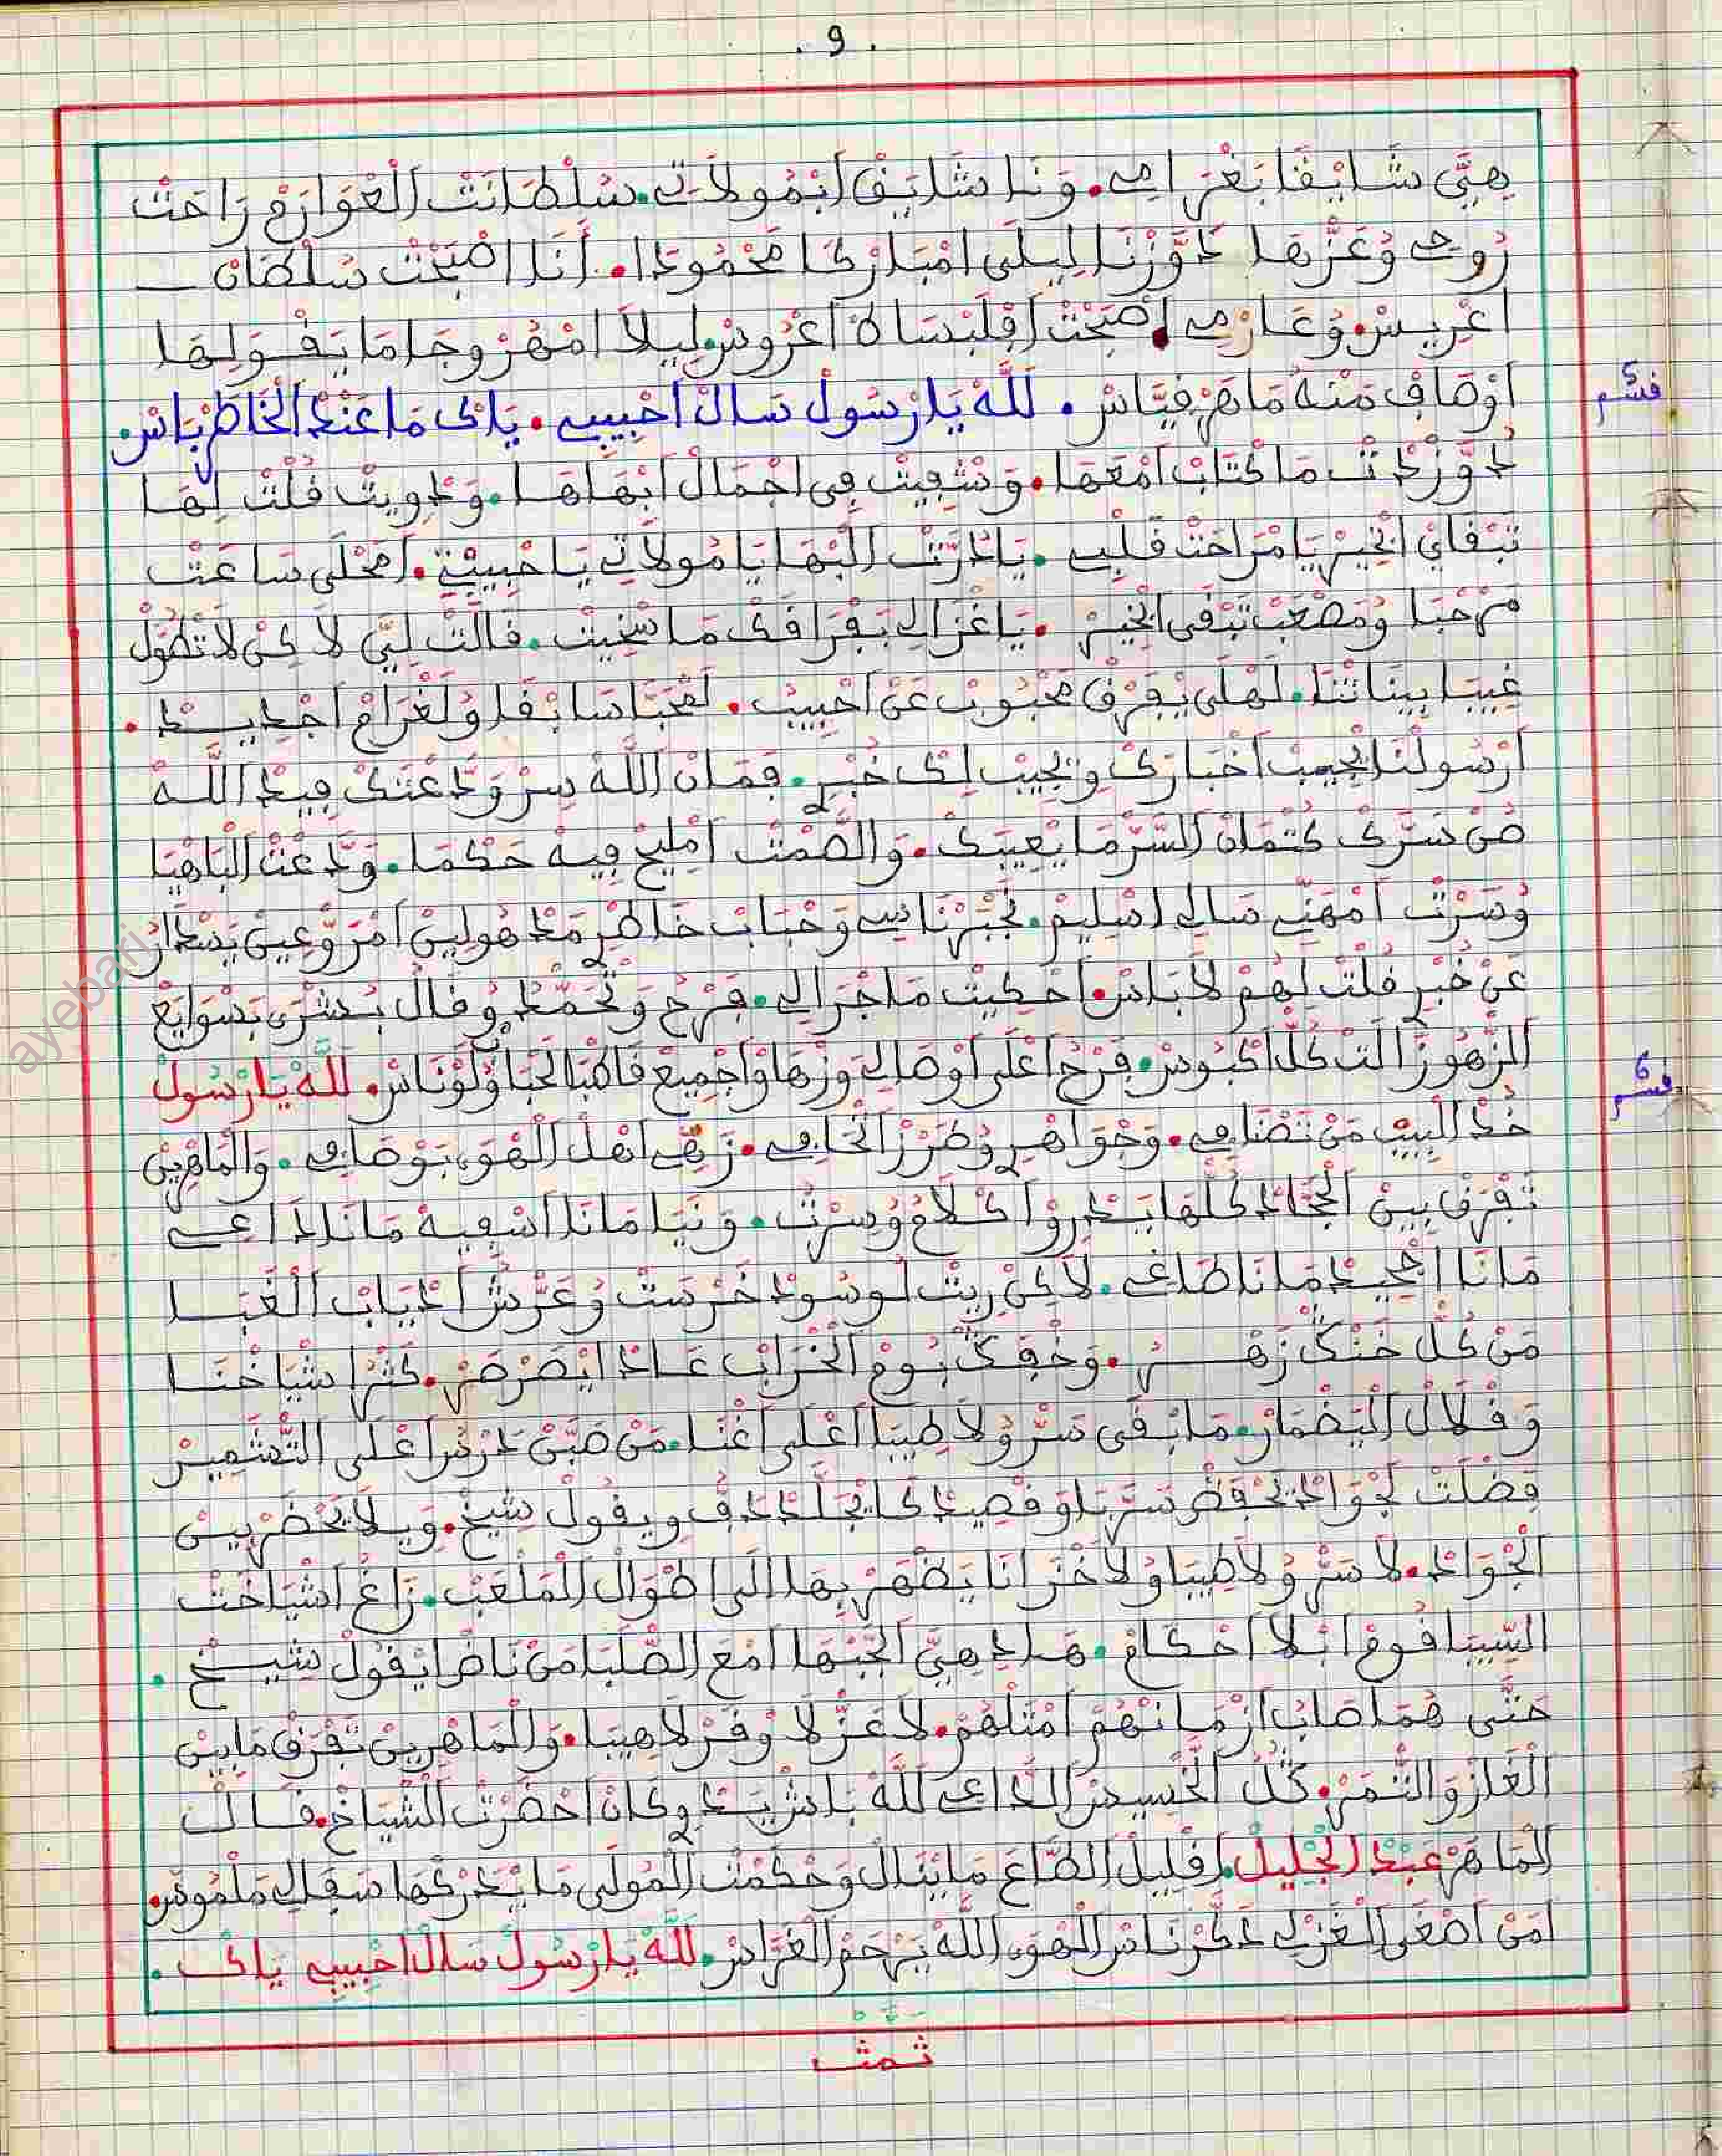 . 9 .
هِيَّ شَايْفَا بَغْرَامِي. وَنَا شَايَقْ ابْمُولاَتِي. سُلْطَانَتْ الْعْوَارَمْ رَاحَتْ
رُوحِي وُعَزْهَا دَوَّزْنَا لِيلَى امْبَارْكَا مَحْمُودَا. أَنَا اصْبَحْتْ سُلْطَانْ
اعْرِيسْ. وُعَارْمِي اصْبَحْتْ افْلَبْسَاتْ اعْرُوسْ. لِيلاَ امْهَرْوجَا مَا يَفْوَلِهَا
اوْصَافْ مَنْهُ مَاهَرْ فِيَّاسْ. لَلَّهْ يَارْسُولْ سَالْ احْبِيبِي. يَاكْ مَا عَنْدْ الْخَاطَرْ بَاسْ.
فسم 5
دَوَّزْتْ مَا كْتَابْ امْعَهَا. وَنْشْفِيتْ فِي اجْمَالْ ابْهَاهَا. وَدْوِيتْ فُلْتْ لِهَا
تَبْفَايْ الْخِيرْ يَا مْرَاحَتْ فَلْبِي. يَا دُرَّتْ الْبْهَا يَا مُولاَتِي يَا حْبِيبْتِي. امْحْلَى سَاعَتْ
مَرْحْبَا وُمَصْعَبْ تَبْفَى الْخِيرْ. يَا غْزَالِي بَفْرَافَكْ مَا سْخِيتْ. فَالَتْ لِيَّ لاَكِنْ لاَ تْطُولْ
غِيبَا بِينَاتْنَا. لَهْلَى يْفَرْفْ مَحْبُوبْ عَنْ احْبِيبْ. لَمْحَبَّا سَابْفَا وُلَغْرَامْ اجْدِيدْ.
ارْسُولْنَا يْجِيبْ اخْبَارَكْ وِيْجِيبْ لِكْ خْبَرِ. فَمَانْ اللَّهْ سِرْ وَدَّعْتَكْ فِيدْ اللَّهْ
صُنْ سَرَّكْ كْتْمَانْ السَّرْ مَا يْعِيبَكْ. وَالصَّمْتْ امْلِيحْ فِيهْ حَكْمَا. وَدَّعْتْ الْبَاهْيَا
وُسَرْتْ امْهَنِّي سَالِي اسْلِيمْ. نَجْبَرْ نَاسِي وَحْبَابْ خَاطْرِ مَدْهُولِينْ امْرَوْعِينْ يَسْدَارُ
عَنْ خْبَرِ فُلْتْ لِهُمْ لاَ بَاسْ. احْكِيتْ مَا جْرَا لِي. فِرْحُ وَتْحَمْدُ وُفَالُ بُشْرَى بَسْوَايَعْ
الزّْهُو زَالَتْ كُلّْ اكْبُوسْ. فِرْحُ اعْلَى اوْصَالِي وَزْهَاوْ اجْمِيعْ فَاطْبَا لَحْبَا وُلَوْنَاسْ. لَلَّهْ يَارْسُولْ
فسم 6
خُدْ الْبِيبْ مَنْ تَصْنَافِي. وَجْوَاهْرِ وُطَرْزْ الْحَافِي. زَهِّي اهْلْ الْهْوَى بَوْصَافِي. وَالْمَاهْرِينْ
تَفْرَفْ بِينْ الْجَحَّادْ كُلّْهَا يَدْرِوْ اكْلاَمُ وُسِرْتُ. وَنَيَا مَانَا اسْفِيهْ مَانَا دَاعِي
مَانَا اجْحِيدْ مَانَا طَاغِي. لاَكِنْ رِيتْ لُوسُودْ خَرْسَتْ وُعَرْشْ ادْيَابْ الْغَبَا
مَنْ كُلّْ خَنْكْ زَهْرُ. وَخْفِكْ بُومْ الْخْرَابْ عَادْ ايْصَرْصَرْ. كَثْرَا شْيَاخْنَا
وَفْلاَلْ الْيَضْمَارْ. مَا بْفَى سَرّْ وُلاَ طِيبَا اعْلَى اغْنَا. مَنْ صَبَّنْ دَرْسْ اعْلَى التَّشْمِيرْ
فِضْلَتْ لَجْوَادْ يَحْفَضْ سَرَّبَا وَفْصِيدْ كَا يْجَلَّدْ دَفُّ وِيفُولْ شِيخْ. وِيلاَ يَحْضَرْ بِينْ
الْجْوَادْ. لاَ سَرّْ وُلاَ طِيبَا وُلاَ خْزَانَا يَضْهَرْ بِهَا الَى اطْوَالْ الْمَلْعَبْ. زَاغُ اشْيَاخَتْ
السِّيبَا فُومْ ابْلاَ احْكَامْ. هَادِ هِيَّ الْجَبْهَا امْعَ الصّْلَبَا مَنْ نَاضْ ايْفُولْ شِيخْ.
حَتَّى هُمَا صَابُ ازْمَانْهُمْ امْثَلْهُمْ. لاَ عَزّْ لاَ وْفَرْ لاَ هِيبَا. وَالْمَاهْرِينْ تَفْرَفْ مَابِينْ
الْغَازْ وَالتّْمَرْ. كُلّْ الْخْسِيسْ الدَّاعِي لَلَّهْ بَاشْ يَنْدِ وِكَانْ احْضَرْتْ الْشْيَاخْ. فَالْ
الْمَاهَرْ عَبْدْ الْجْلِيلْ. افْلِيلْ الطَّاعَ مَا يْنَالْ وَحْكَمْتْ الْمُولَى مَا يَدْرَكْهَا سَفْلِي مَلْمُوسْ.
امَنْ اصْغَى الْغَزْلِي دَكَّرْ نَاسْ الْهْوَى اللَّهْ يَرْحَمْ الْغَرَّاسْ. لَلَّهْ يَارْسُولْ سَالْ احْبِيبِي يَاكْ.
تمت
ayebari